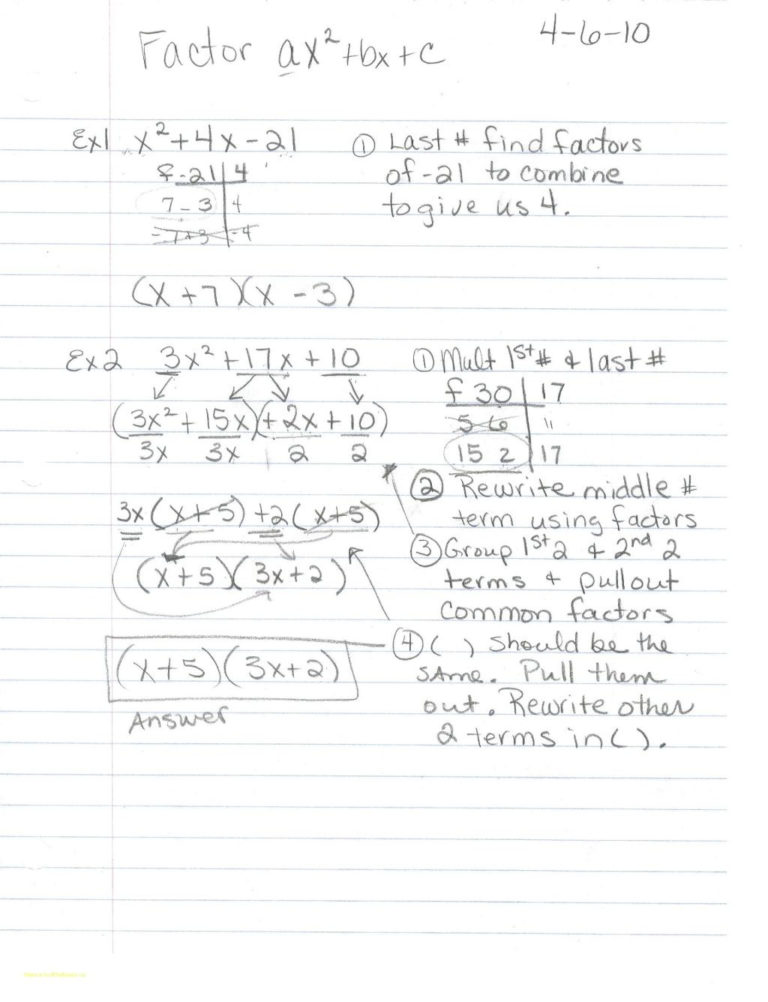 Factor ax²+bx+c
4-6-10
Ex1 x²+4x-21
f -21 | 4
7 -3 | 4
-7+3 | -4
(x+7)(x-3)
① Last # find factors
of -21 to combine
to give us 4.
Ex2 3x²+17x+10
(3x²+15x)(+2x+10)
3x 3x 2 2
3x(x+5)+2(x+5)
(x+5)(3x+2)
(x+5)(3x+2)
Answer
① Mult 1st # & last #
f 30 | 17
5 6 | 11
15 2 | 17
② Rewrite middle #
term using factors
③ Group 1st 2 & 2nd 2
terms & pullout
common factors
④ ( ) should be the
same. Pull them
out. Rewrite other
2 terms in ( ).